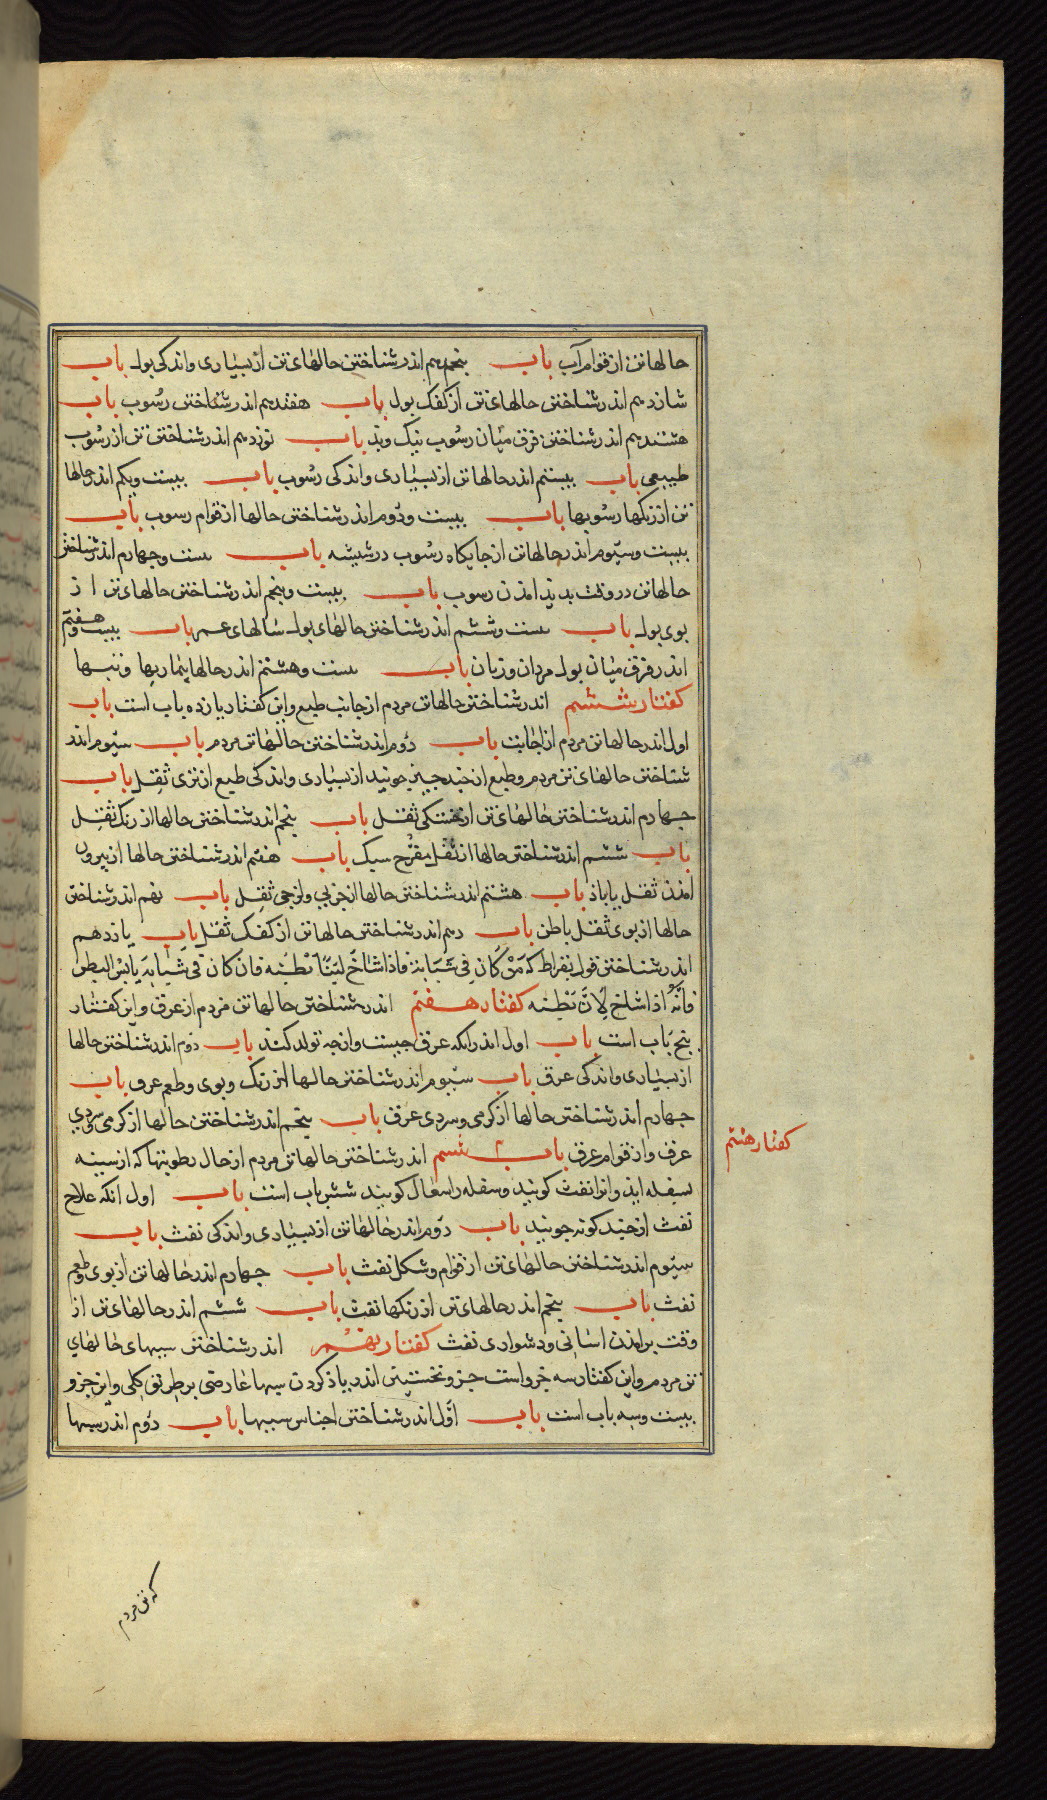 حالهاتن از قوام آب باب پنجدهم اندر شناختن حالهای تن از بسیاری و اندکی بول باب
شازدهم اندر شناختن حالهای تن از کفک بول باب هفندهم اندر شناختن رسوب باب
هشتدهم اندر شناختن فرق میان رسوب نیک و بد باب نوزدهم اندر شناختن تن از رسوب
طبیعی باب بیستم اندر حالهاتن از بسیاری و اندکی رسوب باب بیست و یکم اندر حالها
تن از رنکها رسوبها باب بیست و دوم اندر شناختن حالها از قوام رسوب باب
بیست و سیوم اندر حالهاتن از جایکاه رسوب در شیشه باب بست و چهارم اندر شناختن
حالهاتن در وقت بدید امدن رسوب باب بیست و پنجم اندر شناختن حالهای تن از
بوی بول باب بست و ششم اندر شناختن حالهای بول سالهای عمر باب بیست و هفتم
اندر فرق میان بول مردان و زنان باب بست و هشتم اندر حالها بیماریها و تبها
کفتار ششم اندر شناختن حالهاتن مردم از جانب طبع و این کفتار یازده باب است باب
اول اندر حالهاتن مردم از اجابت باب دوم اندر شناختن حالهاتن مردم باب سیوم اندر
شناختن حالهای تن مردم و طبع از چند چیز جویند از بسیاری و اندکی طبع از تری ثفل باب
چهارم اندر شناختن حالهای تن از خشکی ثفل باب پنجم اندر شناختن حالها از رنک ثفل
باب ششم اندر شناختن حالها از ثفل سبک باب هفتم اندر شناختن حالها از بیرون
امدن ثفل یا باد باب هشتم اندر شناختن حالها از چربی و لزجی ثفل باب نهم اندر شناختن
حالها از بوی ثفل باطن باب دهم اندر شناختن حالهاتن از کفک ثفل باب یازدهم
اندر شناختن قول بقراط که من کان فی شبابه فاذا شاخ لینا بطنه فان کان فی شبابه یابس البطن
فانه اذا شاخ لان بطنه کفتار هفتم اندر شناختن حالهاتن مردم از عرق و این کفتار
پنج باب است باب اول اندر انکه عرق چیست و از چه تولد کند باب دوم اندر شناختن حالها
از بسیاری و اندکی عرق باب سیوم اندر شناختن حالها از رنک و بوی و طعم عرق باب
چهارم اندر شناختن حالها از کرمی و سردی عرق باب پنجم اندر شناختن حالها از کرمی و سردی
عرق و از قوام عرق باب ششم اندر شناختن حالهاتن مردم از حال رطوبتها که از سینه
بسفله اید و انرا نفث کویند و سفله را سعال کویند شش باب است باب اول انکه علاج
نفث از چند کونه جویند باب دوم اندر حالهاتن از بسیاری و اندکی نفث باب
سیوم اندر شناختن حالهای تن از قوام و شکل نفث باب چهارم اندر حالهاتن از بوی و طعم
نفث باب پنجم اندر حالهای تن از رنکها نفث باب ششم اندر حالهای تن از
وقت بر امدن اسانی و دشواری نفث کفتار نهم اندر شناختن سببهای حالهای
تن مردم و این کفتار سه جزو است جزو نخستین اندر یاد کردن سببها عارضی بر طریق کلی و این جزو
بیست و سه باب است باب اول اندر شناختن اجناس سببها باب دوم اندر سببها
کفتار هشتم
که تن مردم